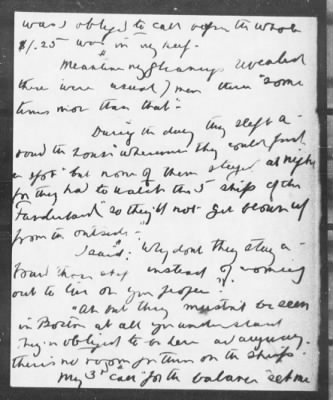 was obliged to call upon the whole
$1.25 was in my
Meantime my revealed
there were usual 7 men then "some
times more than that".
During the day they slept a-
round the house "wherever they could find
a spot" but none of them stayed at night
for they had to watch the 3 ships of the
so they'd not get blown up
from the outside.
I said: "Why don't they stay a-
board their ship instead of coming
out to live on you people".
"Ah but they mustn't be seen
in Boston at all you understand
They're obliged to be here
there is no room for them on the ships."
My 3rd "call" for the balance set me